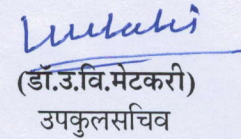 (डॉ.उ.वि.मेटकरी)
उपकुलसचिव